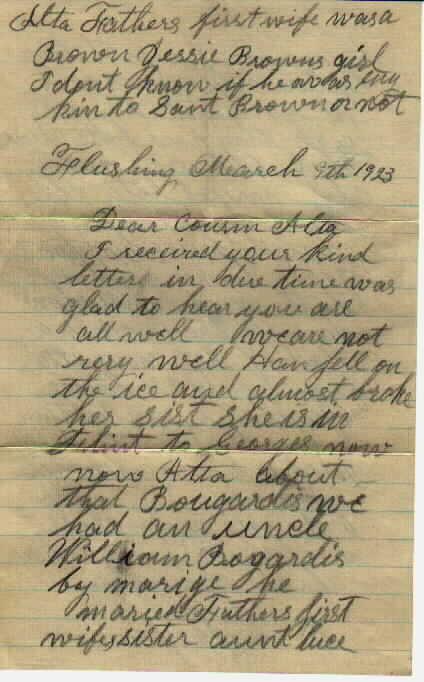 Alta Fathers first wife was a
Brown Jessie Browns girl
I dont know if he was eny
kin to Sant Brown or not
Flushing March 9th 1923
Dear Cousin Alta
I received your kind
letters in due time was
glad to hear you are
all well we are not
very well Han fell on
the ice and almost broke
her sist she is in
Flint to Georges now
now Alta about
that Bougardis we
had an uncle
William Bogardis
by marige he
maried Fathers first
wifes sister aunt luce